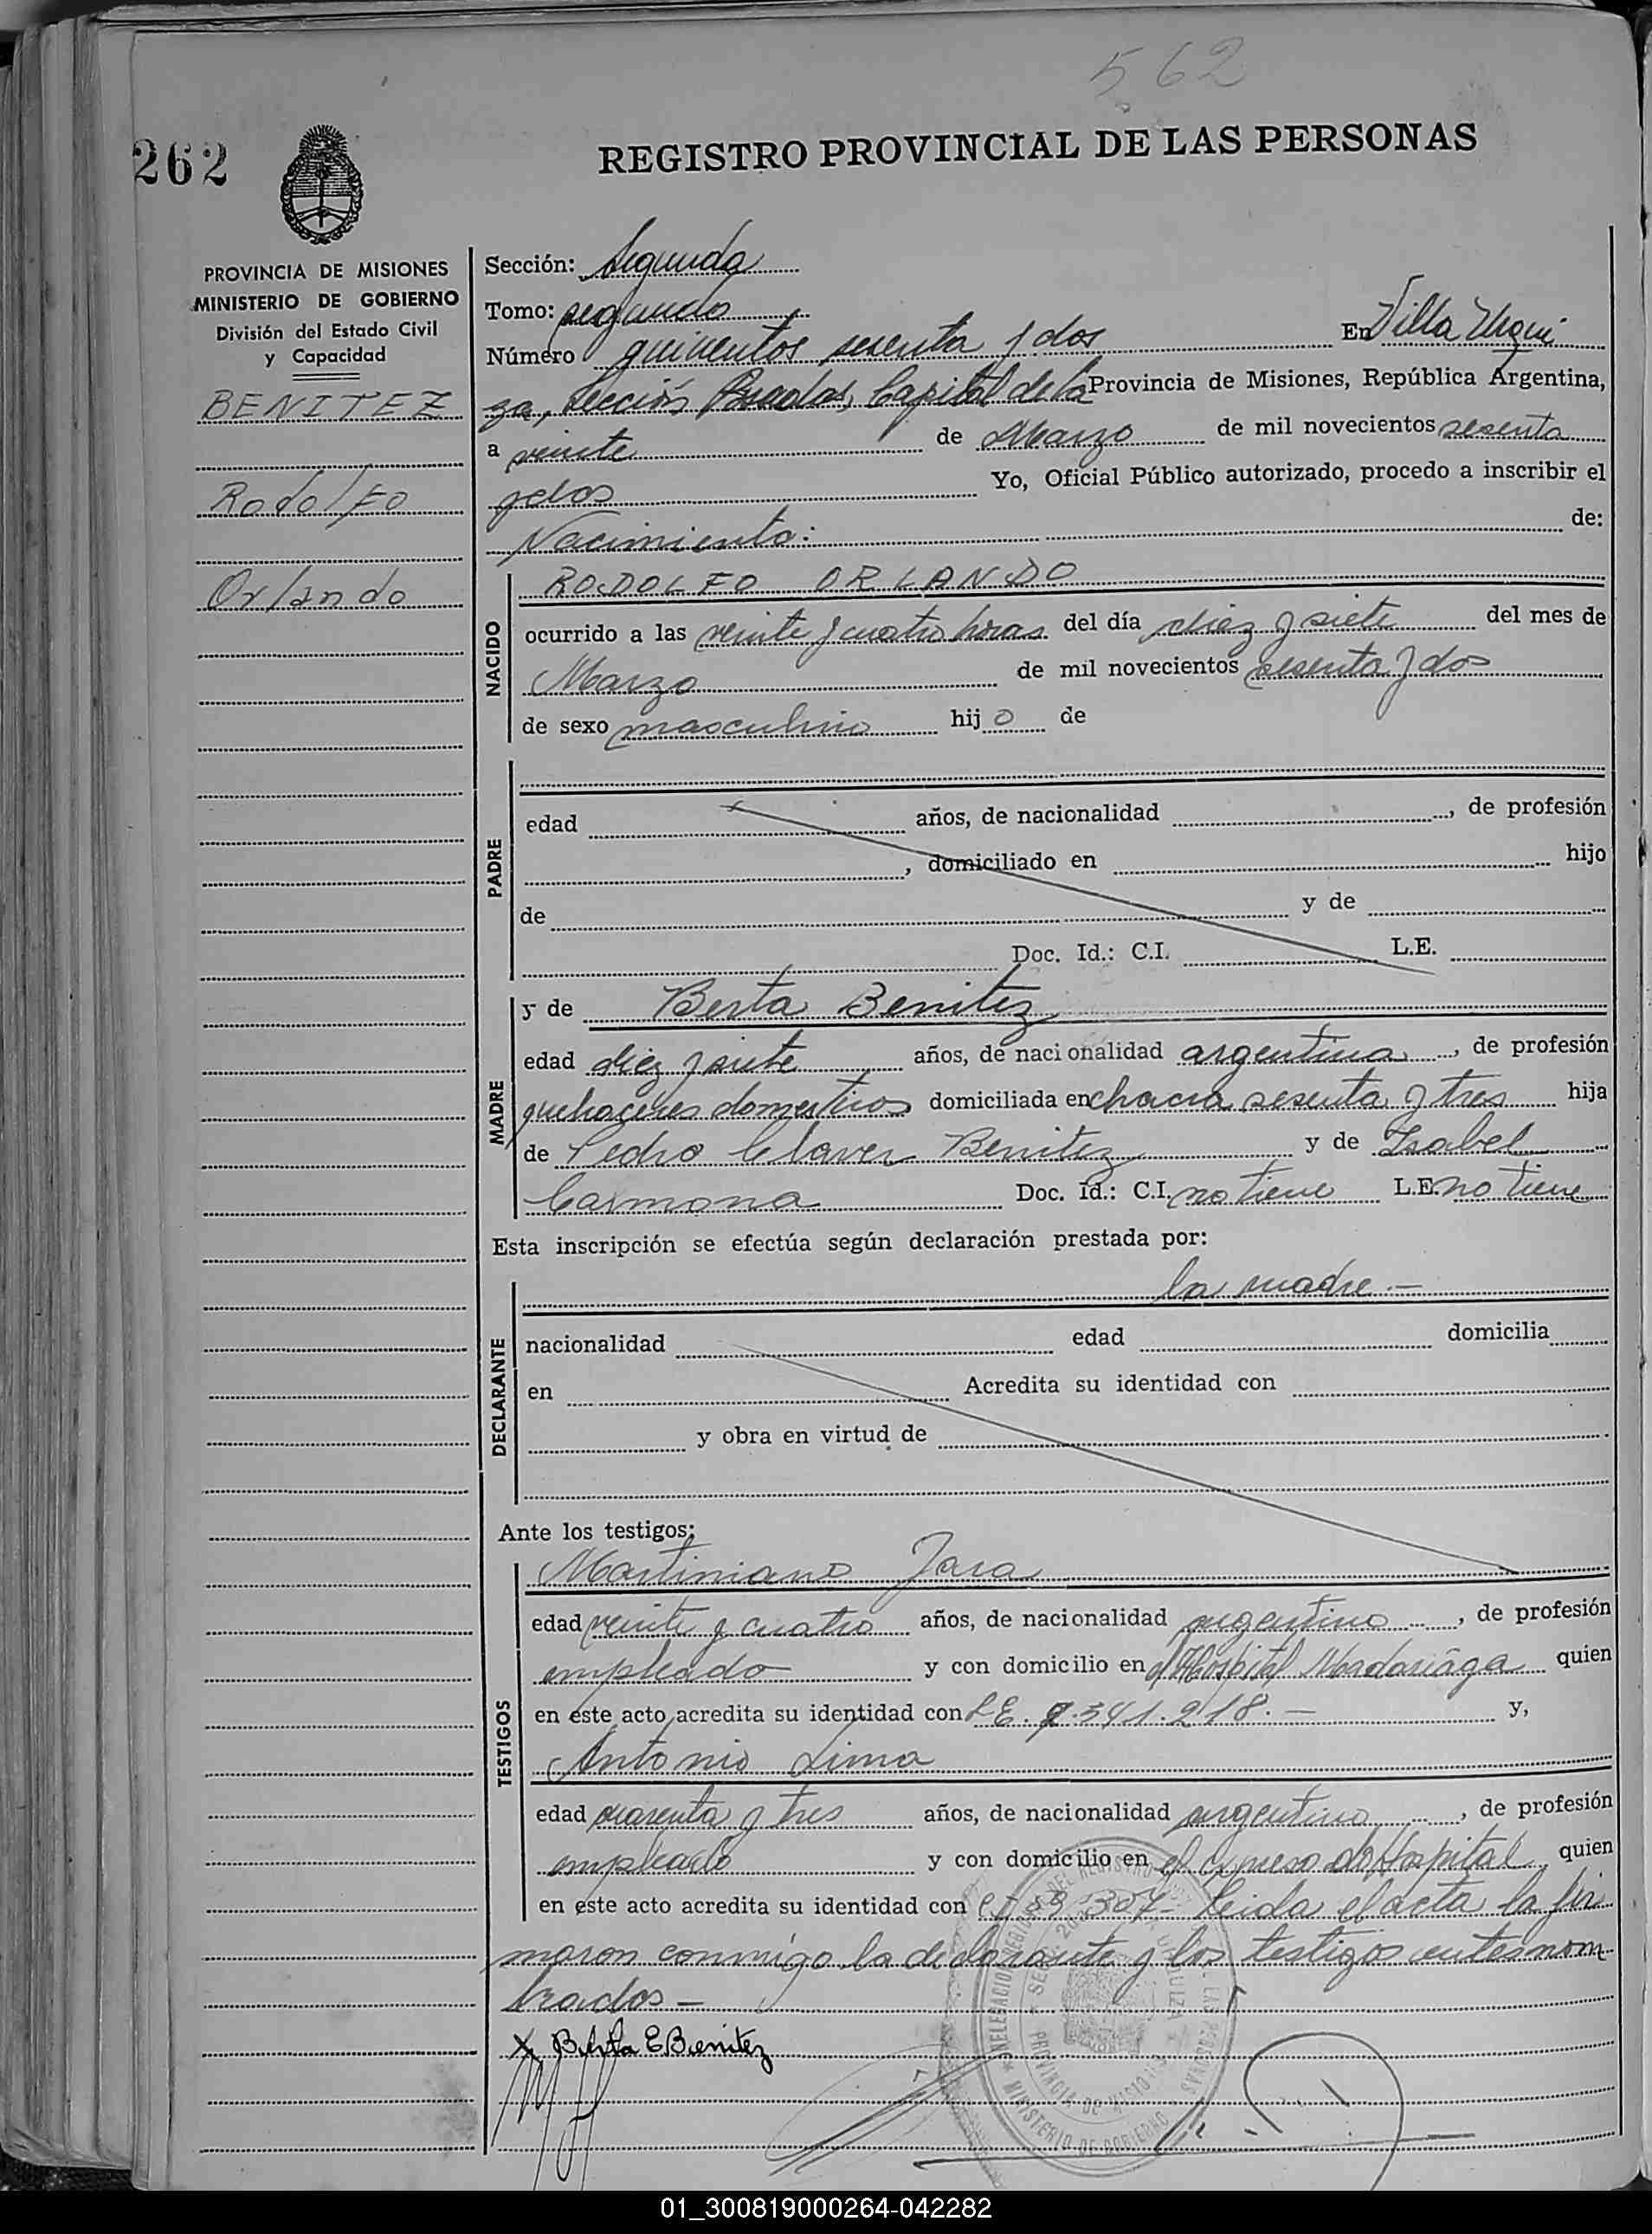 562
262
REGISTRO PROVINCIAL DE LAS PERSONAS
PROVINCIA DE MISIONES
MINISTERIO DE GOBIERNO
División del Estado Civil
y Capacidad
BENITEZ
Rodolfo
Orlando
Sección: Segunda
Tomo: segundo
Número quinientos sesenta y dos En Villa Urqui
za, Sección Posadas, Capital de la Provincia de Misiones, República Argentina,
a veinte de Marzo de mil novecientos sesenta
y dos Yo, Oficial Público autorizado, procedo a inscribir el
Nacimiento: de:
NACIDO
RODOLFO ORLANDO
ocurrido a las veinte y cuatro horas del día diez y siete del mes de
Marzo de mil novecientos sesenta y dos
de sexo masculino hijo de
PADRE
edad años, de nacionalidad , de profesión
, domiciliado en hijo
de y de
Doc. Id.: C.I. L.E.
MADRE
y de Berta Benitez
edad diez y siete años, de nacionalidad argentina, de profesión
quehaceres domesticos domiciliada en chacra sesenta y tres hija
de Pedro Claver Benitez y de Isabel
Carmona Doc. Id.: C.I. no tiene L.E. no tiene
Esta inscripción se efectúa según declaración prestada por:
la madre.—
DECLARANTE
nacionalidad edad domicilia
en Acredita su identidad con
y obra en virtud de
Ante los testigos:
TESTIGOS
Martiniano Jara
edad veinte y cuatro años, de nacionalidad argentino, de profesión
empleado y con domicilio en el Hospital Madariaga quien
en este acto acredita su identidad con L.E. 7.541.218.— y,
Antonio Lima
edad cuarenta y tres años, de nacionalidad argentino, de profesión
empleado y con domicilio en el Hospital quien
en este acto acredita su identidad con Leida el acta la fir
maron conmigo la declarante y los testigos antes nom
brados —
x Berta E Benitez
MINISTERIO DE GOBIERNO
PROVINCIA DE MISIONES
01_300819000264-042282